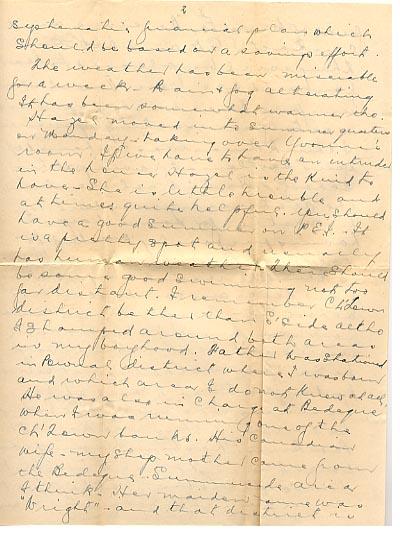 3
systematic financial plan which
should be based on a savings effort.
The weather has been miserable
for a week - Rain & fog alterating
It has been somewhat warmer tho.
Hazel moved into summer quarters
on Monday - taking over Yvonne's
room. If we have to have an intruder
in the house Hazel is the kind to
have - She is little trouble and
at times quite helpful. You should
have a good summer on P.E.I. - It
is a pretty spot and
has weather. There should
be some good swimming not too
far distant. I remember Ch'town
district better than S'Side altho
I tramped around both areas
in my boyhood. Father was stationed
in Pownal district when I was born
and which area I do not know at all.
He was also in charge at Bedeque
when I was running one of the
Ch'town banks. His Canadian
wife - my step mother came from
the Bedeque - Summerside area
I think - Her maiden name was
"Wright" - and that district is